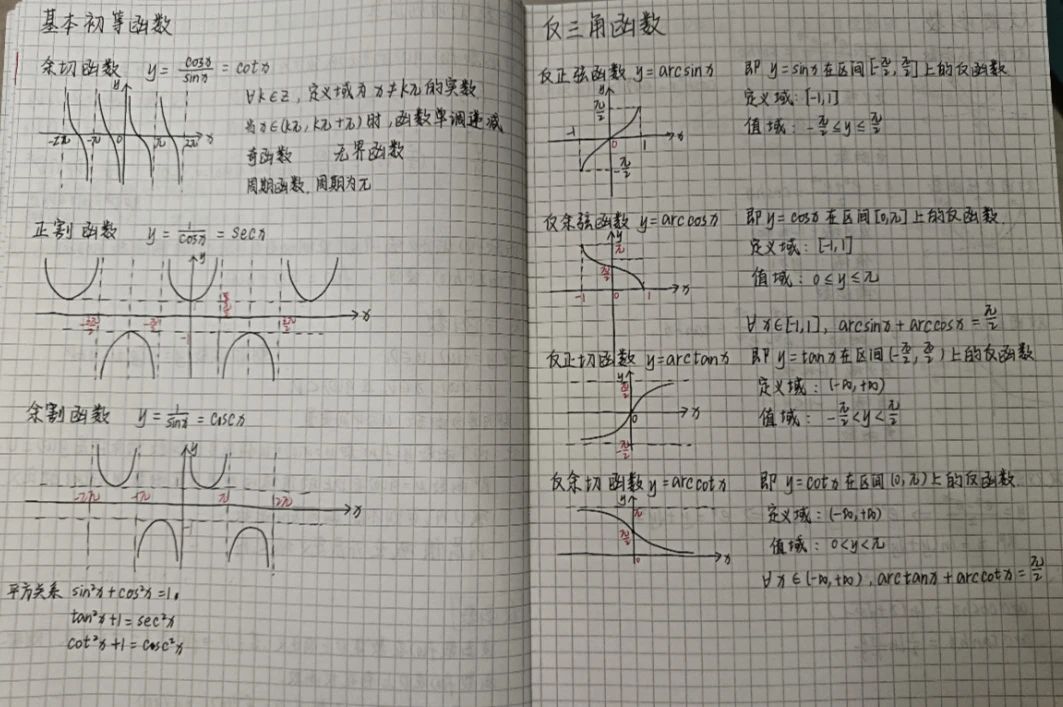 基本初等函数
余切函数 y = cosx/sinx = cotx
∀k∈Z, 定义域为 x≠kπ的实数
当x∈(kπ, kπ+π)时,函数单调递减
奇函数 无界函数
周期函数,周期为π
y
-2π -π 0 π 2π x
正割函数 y = 1/cosx = secx
y
x
-3π/2 -π/2 π/2 3π/2
-1
余割函数 y = 1/sinx = cscx
y
-2π -π π 2π x
平方关系 sin²x+cos²x=1.
tan²x+1=sec²x
cot²x+1=csc²x
反三角函数
反正弦函数 y=arcsinx 即 y=sinx在区间[-π/2, π/2]上的反函数
定义域:[-1,1]
值域: -π/2≤y≤π/2
y
π/2
-1 0 1 x
-π/2
反余弦函数 y=arccosx 即y=cosx在区间[0,π]上的反函数.
定义域:[-1,1]
值域: 0≤y≤π
∀x∈[-1,1], arcsinx+arccosx=π/2
y
π
π/2
-1 0 1 x
反正切函数 y=arctanx 即 y=tanx在区间(-π/2, π/2)上的反函数
定义域: (-∞,+∞)
值域: -π/2<y<π/2
y
π/2
0 x
-π/2
反余切函数 y=arccotx 即 y=cotx在区间(0,π)上的反函数.
定义域: (-∞,+∞)
值域: 0<y<π
∀x∈(-∞,+∞), arctanx+arccotx=π/2
y
π
π/2
0 x